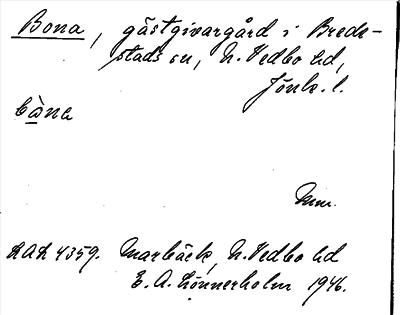 Bona, gästgivargård i Brede-
stads sn, N. Vedbo hd,
Jönk. l.
bo̱̱na
Mm.
ULMA 4359. Marbäck, N. Vedbo hd
E. A. Lönnerholm 1946.